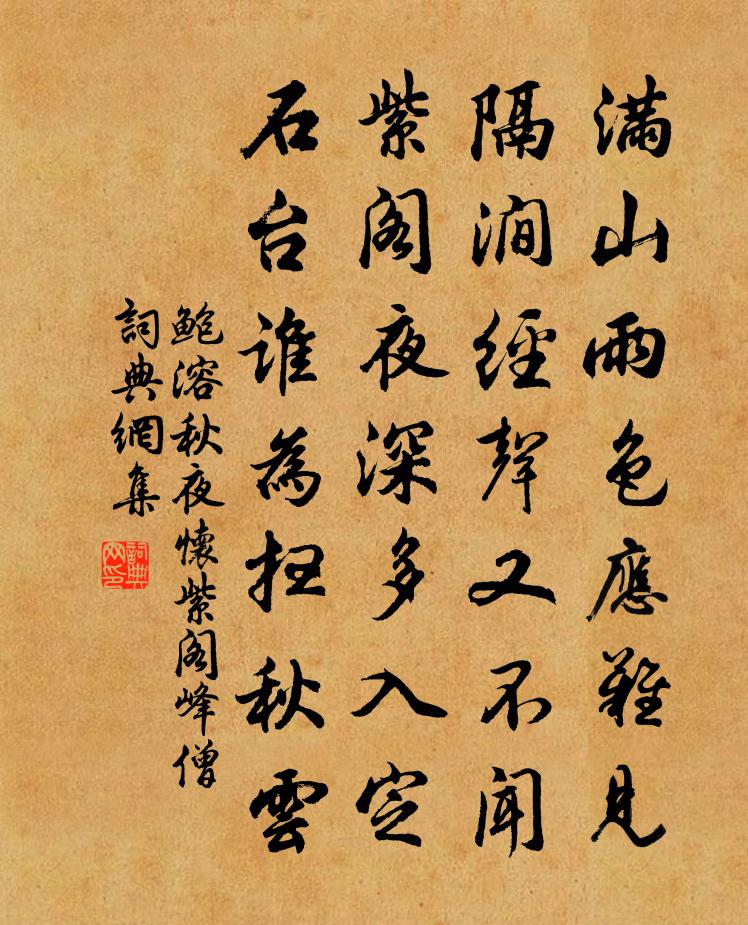 满山雨色應難見
隔澗經聲又不聞
紫阁夜深多入定
石台谁為扫秋雲
鲍溶秋夜懷紫阁峰僧
詞典網集
詞典網印